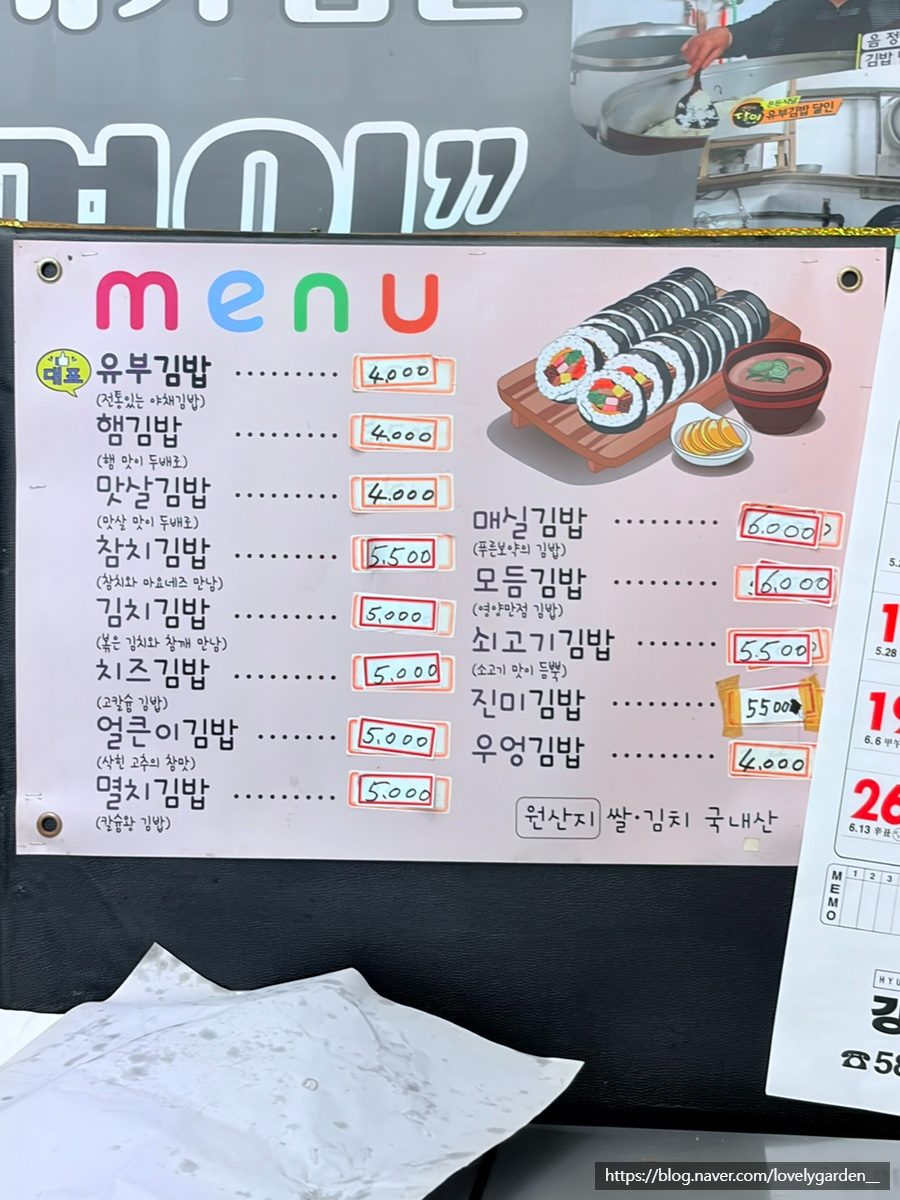 음 정
김밥
은둔식달
달인
유부김밥 달인
menu
대표
유부김밥 ········· 4,000
(전통있는 야채김밥)
햄김밥 ········· 4.000
(햄 맛이 두배로)
맛살김밥 ········· 4.000
(맛살 맛이 두배로)
참치김밥 ········· 5.500
(참치와 마요네즈 만남)
김치김밥 ········· 5,000
(볶은 김치와 참깨 만남)
치즈김밥 ········· 5.000
(고칼슘 김밥)
얼큰이김밥 ······· 5.000
(삭힌 고추의 참맛)
멸치김밥 ········· 5.000
(칼슘왕 김밥)
매실김밥 ········· 6.000
(푸른보약의 김밥)
모듬김밥 ········· 6.000
(영양만점 김밥)
쇠고기김밥 ······· 5.500
(소고기 맛이 듬뿍)
진미김밥 ········· 5500
우엉김밥 ········· 4.000
원산지 쌀·김치 국내산
5.28
6.6
26
6.13
MEMO
1 2 3
강
☎58
https://blog.naver.com/lovelygarden__